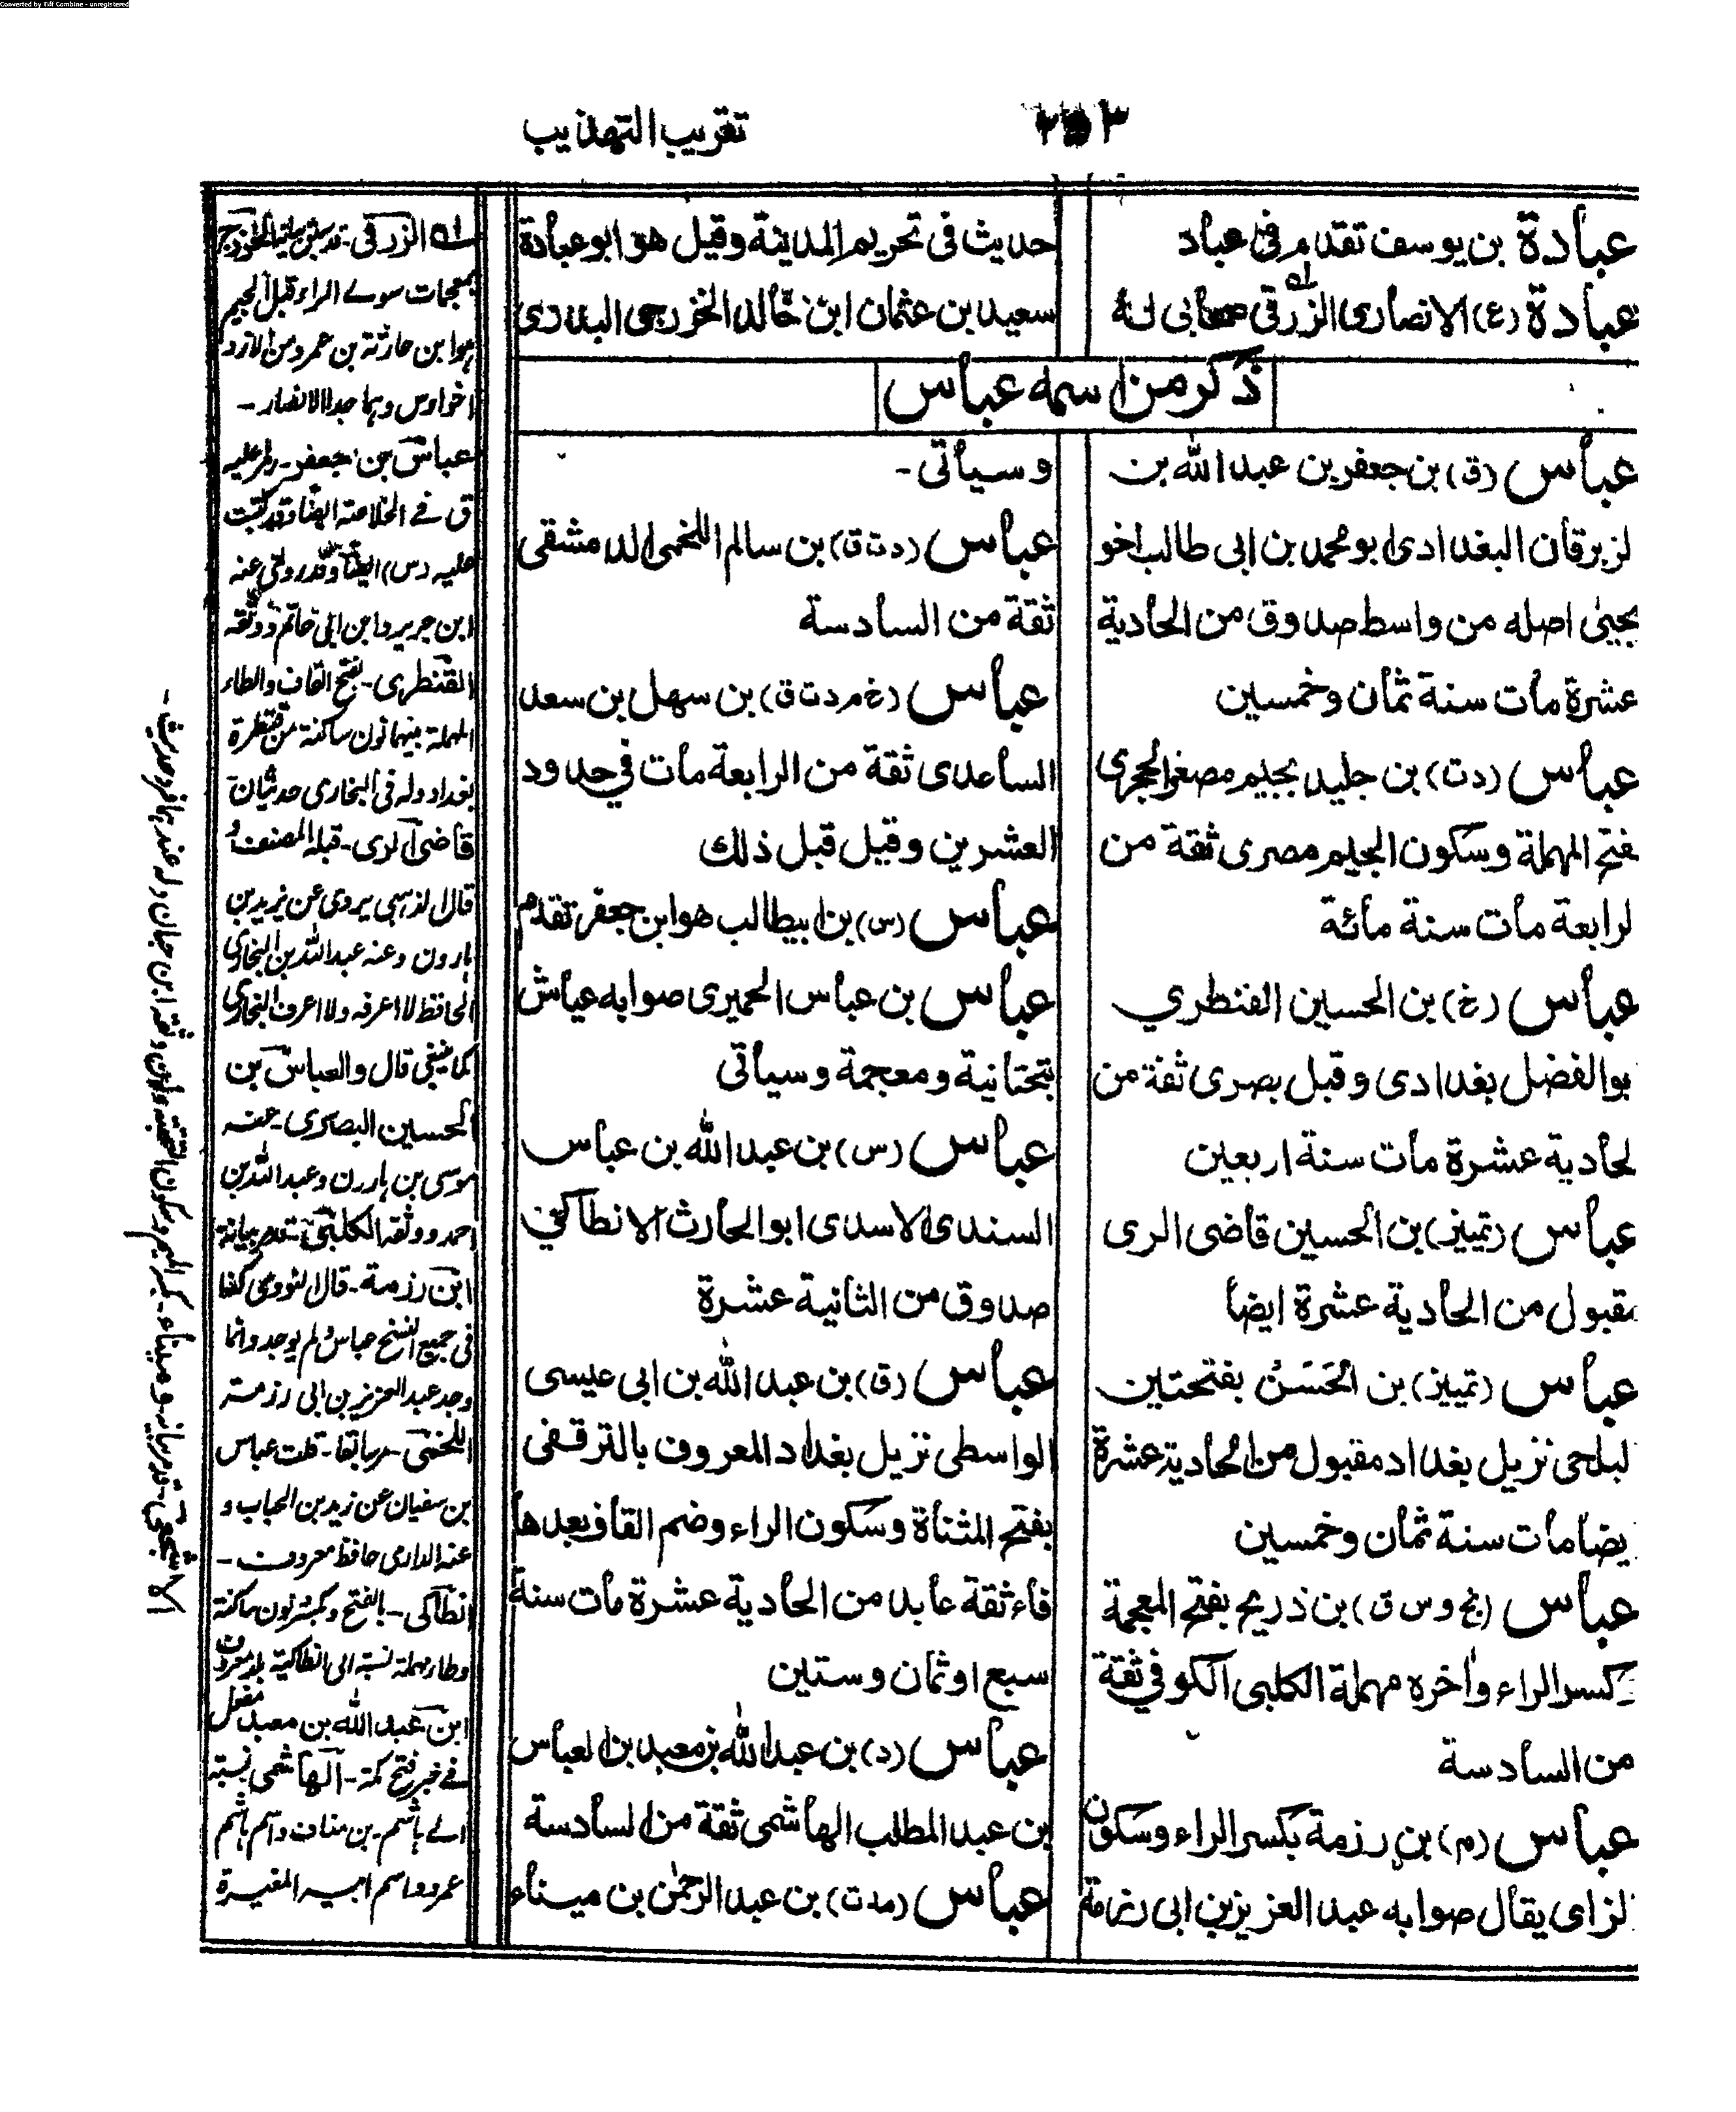 Converted by Tiff Combine - unregistered
تقريب التهذيب
عبادة بن يوسف تقدم في عباد
عبادة (ع) الانصاري الزرقي صحابي له
حديث في تحريم المدينة وقيل هو ابو عبادة
سعيد بن عثمان ابن خالد الخزرجي البدري
ذكر من اسمه عباس
عباس (ق) بن جعفر بن عبد الله بن
لزبرقان البغدادي ابو محمد بن ابي طالب اخو
يحيى اصله من واسط صدوق من الحادية
عشرة مات سنة ثمان وخمسين
عباس (دت) بن جليد بجيم مصغر الحجري
فتح المهملة وسكون الجيم مصري ثقة من
لرابعة مات سنة مائة
عباس (خ) بن الحسين القنطري
بو الفضل بغدادي وقيل بصري ثقة من
لحادية عشرة مات سنة اربعين
عباس (تمييز) بن الحسين قاضي الري
مقبول من الحادية عشرة ايضا
عباس (تمييز) بن الحَسَنْ بفتحتين
لبلخي نزيل بغداد مقبول من الحادية عشرة
يضا مات سنة ثمان وخمسين
عباس (بخ و س ق) بن ذريح بفتح المعجمة
كسر الراء وآخره مهملة الكلبي الكوفي ثقة
من السادسة
عباس (م) بن رزمة بكسر الراء وسكون
لزاي يقال صوابه عبد العزيز بن ابي رزمة
وسيأتي -
عباس (د ت ق) بن سالم اللخمي الدمشقي
ثقة من السادسة
عباس (خ م د ت ق) بن سهل بن سعد
الساعدي ثقة من الرابعة مات في حدود
العشرين وقيل قبل ذلك
عباس (س) بن ابيطالب هو ابن جعفر تقدم
عباس بن عباس الحميري صوابه عياش
بتحتانية ومعجمة وسيأتي
عباس (س) بن عبد الله بن عباس
السندي الاسدي ابو الحارث الانطاكي
صدوق من الثانية عشرة
عباس (ق) بن عبد الله بن ابي عيسى
الواسطي نزيل بغداد المعروف بالترقفي
بفتح المثناة وسكون الراء وضم القاف بعدها
فاء ثقة عابد من الحادية عشرة مات سنة
سبع او ثمان وستين
عباس (د) بن عبد الله بن معبد بن العباس
بن عبد المطلب الهاشمي ثقة من السادسة
عباس (مدت) بن عبد الرحمن بن ميناء
له الزرقي - قد سبق بيانه الخزرج
بمعجمات سوے الراء قبل الجيم
هو ابن حارثة بن عمرو من الازد
اخو اوس وهما جدا الانصار -
عباس بن جعفر - رمز عليه
ق فے الخلاصة ايضا وقد كتبت
عليه (س) ايضا وقد روى عنه
ابن جرير وابن ابي حاتم ووثقه
القنطري - بفتح القاف والطاء
المهملة بينهما نون ساكنة من قنطرة
بغداد وله في البخاري حديثان
قاضي الري - قبله المصنف و
قال الذهبي يروي عن يزيد بن
هارون وعنه عبد الله بن البخاري
الحافظ لا اعرفه ولا اعرف البخاري
كما ينبغي قال والعباس بن
الحسين البصري - عنه
موسى بن هارون وعبد الله بن
احمد ووثقه الكلبي - قد مر بيانه
ابن رزمة - قال النووي كذا
في جميع النسخ عباس ولم يوجد وانما
وجد عبد العزيز بن ابي رزمة
اللخمي - مر سابقا - قلت عباس
بن سفيان عن زيد بن الحباب و
عنه الدارمي حافظ معروف -
انطاكي - بالفتح وكسر نون ساكنة
وطاء مهملة نسبة الى انطاكية بلد معروف
ابن عبد الله بن معبد مغفل
فے خبر فتح مكة - الهاشمي نسبة
الے هاشم - بن مناف واسم هاشم
عمرو واسم ابيه المغيرة
الاشجعي - قد مر بيانه و ميناء - بكسر الميم وسكون التحتية ونون وثقه ابن حبان وله عندهما فرد حديث -